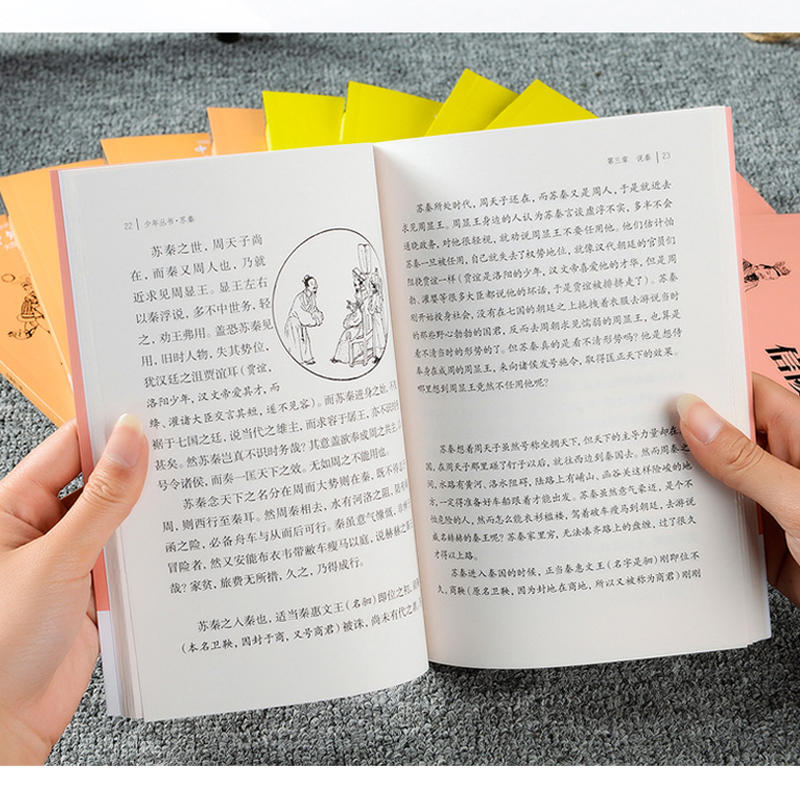 22 少年丛书·苏秦
苏秦之世，周天子尚
在，而秦又周人也，乃就
近求见周显王。显王左右
以秦浮说，多不中世务，轻
之，劝王弗用。盖恐苏秦见
用，旧时人物，失其势位，
犹汉廷之沮贾谊耳（贾谊，
洛阳少年，汉文帝爱其才，而
绛、灌诸大臣交言其短，遂不见容）。而苏秦进身之始，不
裾于七国之廷，说当代之雄主，而求容于孱王，亦不识时
甚矣。然苏秦岂真不识时务哉？其意盖欲奉成周之共主，
号令诸侯，而奏一匡天下之效。无如周之不能用也。
苏秦念天下之名分在周而大势则在秦，既不得
周，则西行至秦耳。然周秦相去，水有河洛之阻，陆有
函之险，必备舟车与从而后可行。秦虽意气慷慨，非
冒险者，然又安能布衣韦带敝车瘦马以庭，说赫赫
哉？家贫，旅费无所措，久之，乃得成行。
苏秦之人秦也，适当秦惠文王（名驲）即位之初，
（本名卫鞅，因封于商，又号商君）被诛，尚未有代之者，
第三章 说秦 23
苏秦所处时代，周天子还在，而苏秦又是周人，于是就近去
求见周显王。周显王身边的人认为苏秦言谈虚浮不实，多半不会
通晓政务，对他很轻视，就劝说周显王不要任用他。他们估计怕
苏秦一旦被任用，自己就失去了权势地位，就像汉代朝廷的官员们
阻挠贾谊一样（贾谊是洛阳的少年，汉文帝喜爱他的才华，但是周
勃、灌婴等很多大臣都说他的坏话，于是贾谊被排挤走了）。苏秦
刚开始投身社会，没有在七国的朝廷之上拖拽着衣服去游说当时
的那些野心勃勃的国君，反而去周朝求见懦弱的周显王，也算是
看不清当时的形势的了。但苏秦真的是看不清形势吗？他是想侍
奉身在成周的周天子，来向诸侯发号施令，取得匡正天下的效果。
哪里想到周显王竟然不任用他呢？
苏秦想着周天子虽然号称坐拥天下，但天下的主导力量却在
国，在周天子那里碰了钉子以后，就往西边到秦国去。然而周秦
地，水路有黄河、洛水阻碍，陆路上有崤山、函谷关这样险峻的地
方，一定得准备好车船跟着才能出发。苏秦虽然意气豪迈，是个不
怕危险的人，然而怎么能衣衫褴褛、驾着破车瘦马到朝廷，去游说
威名赫赫的秦王呢？苏秦家里穷，无法凑齐路上的盘缠，过了很久
才得以上路。
苏秦进入秦国的时候，正当秦惠文王（名字是驲）刚即位不
久。商鞅（原名卫鞅，因为封地在商地，所以又被称为商君）刚刚
信